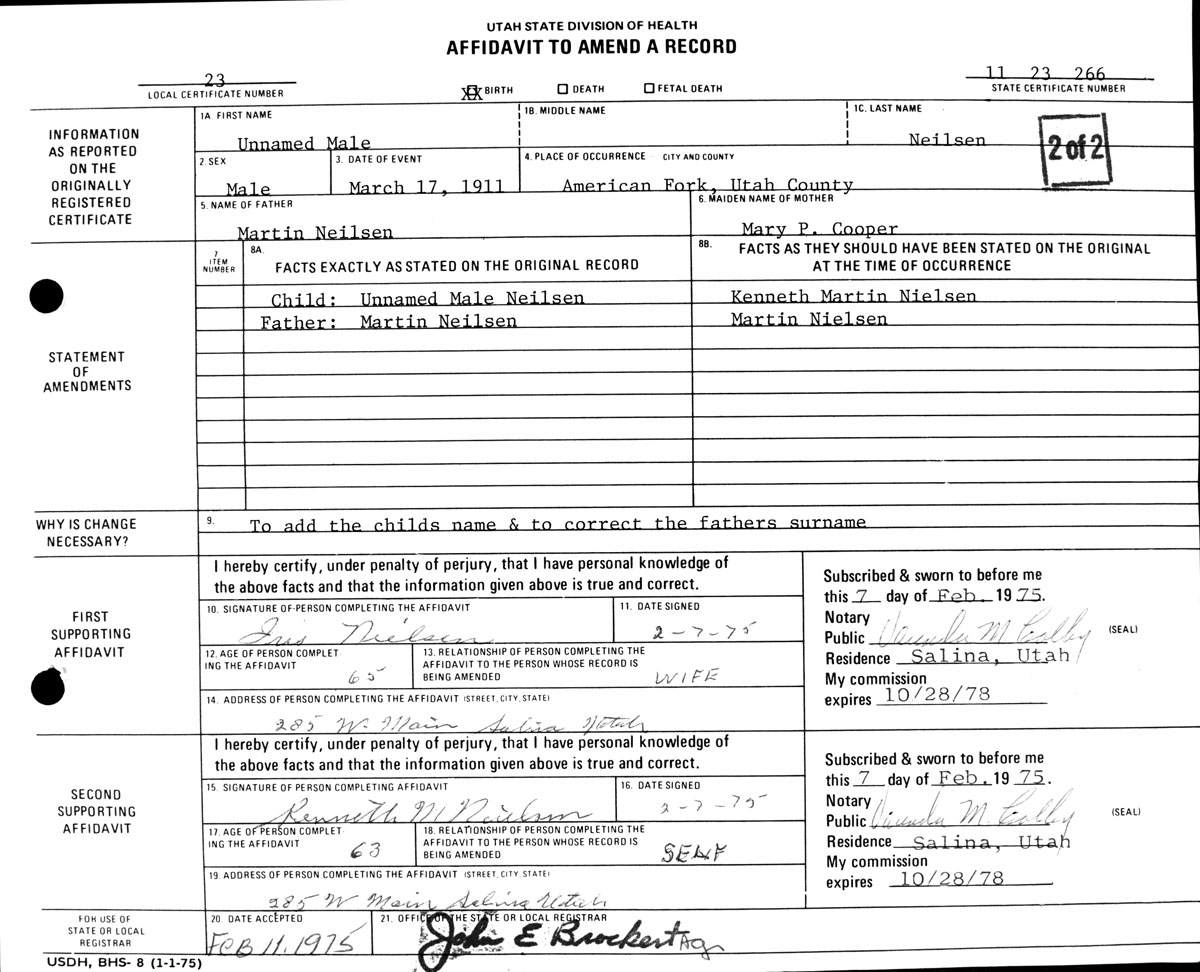 UTAH STATE DIVISION OF HEALTH
AFFIDAVIT TO AMEND A RECORD
23
LOCAL CERTIFICATE NUMBER
XX BIRTH
DEATH
FETAL DEATH
11 23 266
STATE CERTIFICATE NUMBER
INFORMATION
AS REPORTED
ON THE
ORIGINALLY
REGISTERED
CERTIFICATE
1A FIRST NAME
Unnamed Male
1B. MIDDLE NAME
1C. LAST NAME
Neilsen
2 of 2
2. SEX
Male
3. DATE OF EVENT
March 17, 1911
4. PLACE OF OCCURRENCE CITY AND COUNTY
American Fork, Utah County
5. NAME OF FATHER
Martin Neilsen
6. MAIDEN NAME OF MOTHER
Mary P. Cooper
STATEMENT
OF
AMENDMENTS
7
ITEM
NUMBER
8A.
FACTS EXACTLY AS STATED ON THE ORIGINAL RECORD
8B.
FACTS AS THEY SHOULD HAVE BEEN STATED ON THE ORIGINAL
AT THE TIME OF OCCURRENCE
Child: Unnamed Male Neilsen
Kenneth Martin Nielsen
Father: Martin Neilsen
Martin Nielsen
WHY IS CHANGE
NECESSARY?
9.
To add the childs name & to correct the fathers surname
FIRST
SUPPORTING
AFFIDAVIT
I hereby certify, under penalty of perjury, that I have personal knowledge of
the above facts and that the information given above is true and correct.
10. SIGNATURE OF PERSON COMPLETING THE AFFIDAVIT
Iris Nielsen
11. DATE SIGNED
2-7-75
12. AGE OF PERSON COMPLET
ING THE AFFIDAVIT
65
13. RELATIONSHIP OF PERSON COMPLETING THE
AFFIDAVIT TO THE PERSON WHOSE RECORD IS
BEING AMENDED
WIFE
14. ADDRESS OF PERSON COMPLETING THE AFFIDAVIT (STREET, CITY, STATE)
285 W. Main Salina Utah
Subscribed & sworn to before me
this 7 day of Feb. 1975.
Notary
Public
(SEAL)
Residence Salina, Utah
My commission
expires 10/28/78
SECOND
SUPPORTING
AFFIDAVIT
I hereby certify, under penalty of perjury, that I have personal knowledge of
the above facts and that the information given above is true and correct.
15. SIGNATURE OF PERSON COMPLETING AFFIDAVIT
Kenneth M Nielsen
16. DATE SIGNED
2-7-75
17. AGE OF PERSON COMPLET
ING THE AFFIDAVIT
63
18. RELATIONSHIP OF PERSON COMPLETING THE
AFFIDAVIT TO THE PERSON WHOSE RECORD IS
BEING AMENDED
SELF
19. ADDRESS OF PERSON COMPLETING THE AFFIDAVIT (STREET, CITY, STATE)
285 W Main Salina Utah
Subscribed & sworn to before me
this 7 day of Feb. 1975.
Notary
Public
(SEAL)
Residence Salina, Utah
My commission
expires 10/28/78
FOR USE OF
STATE OR LOCAL
REGISTRAR
20. DATE ACCEPTED
FEB 11, 1975
21. OFFICE OF THE STATE OR LOCAL REGISTRAR
John E Brockert Ag.
USDH, BHS- 8 (1-1-75)